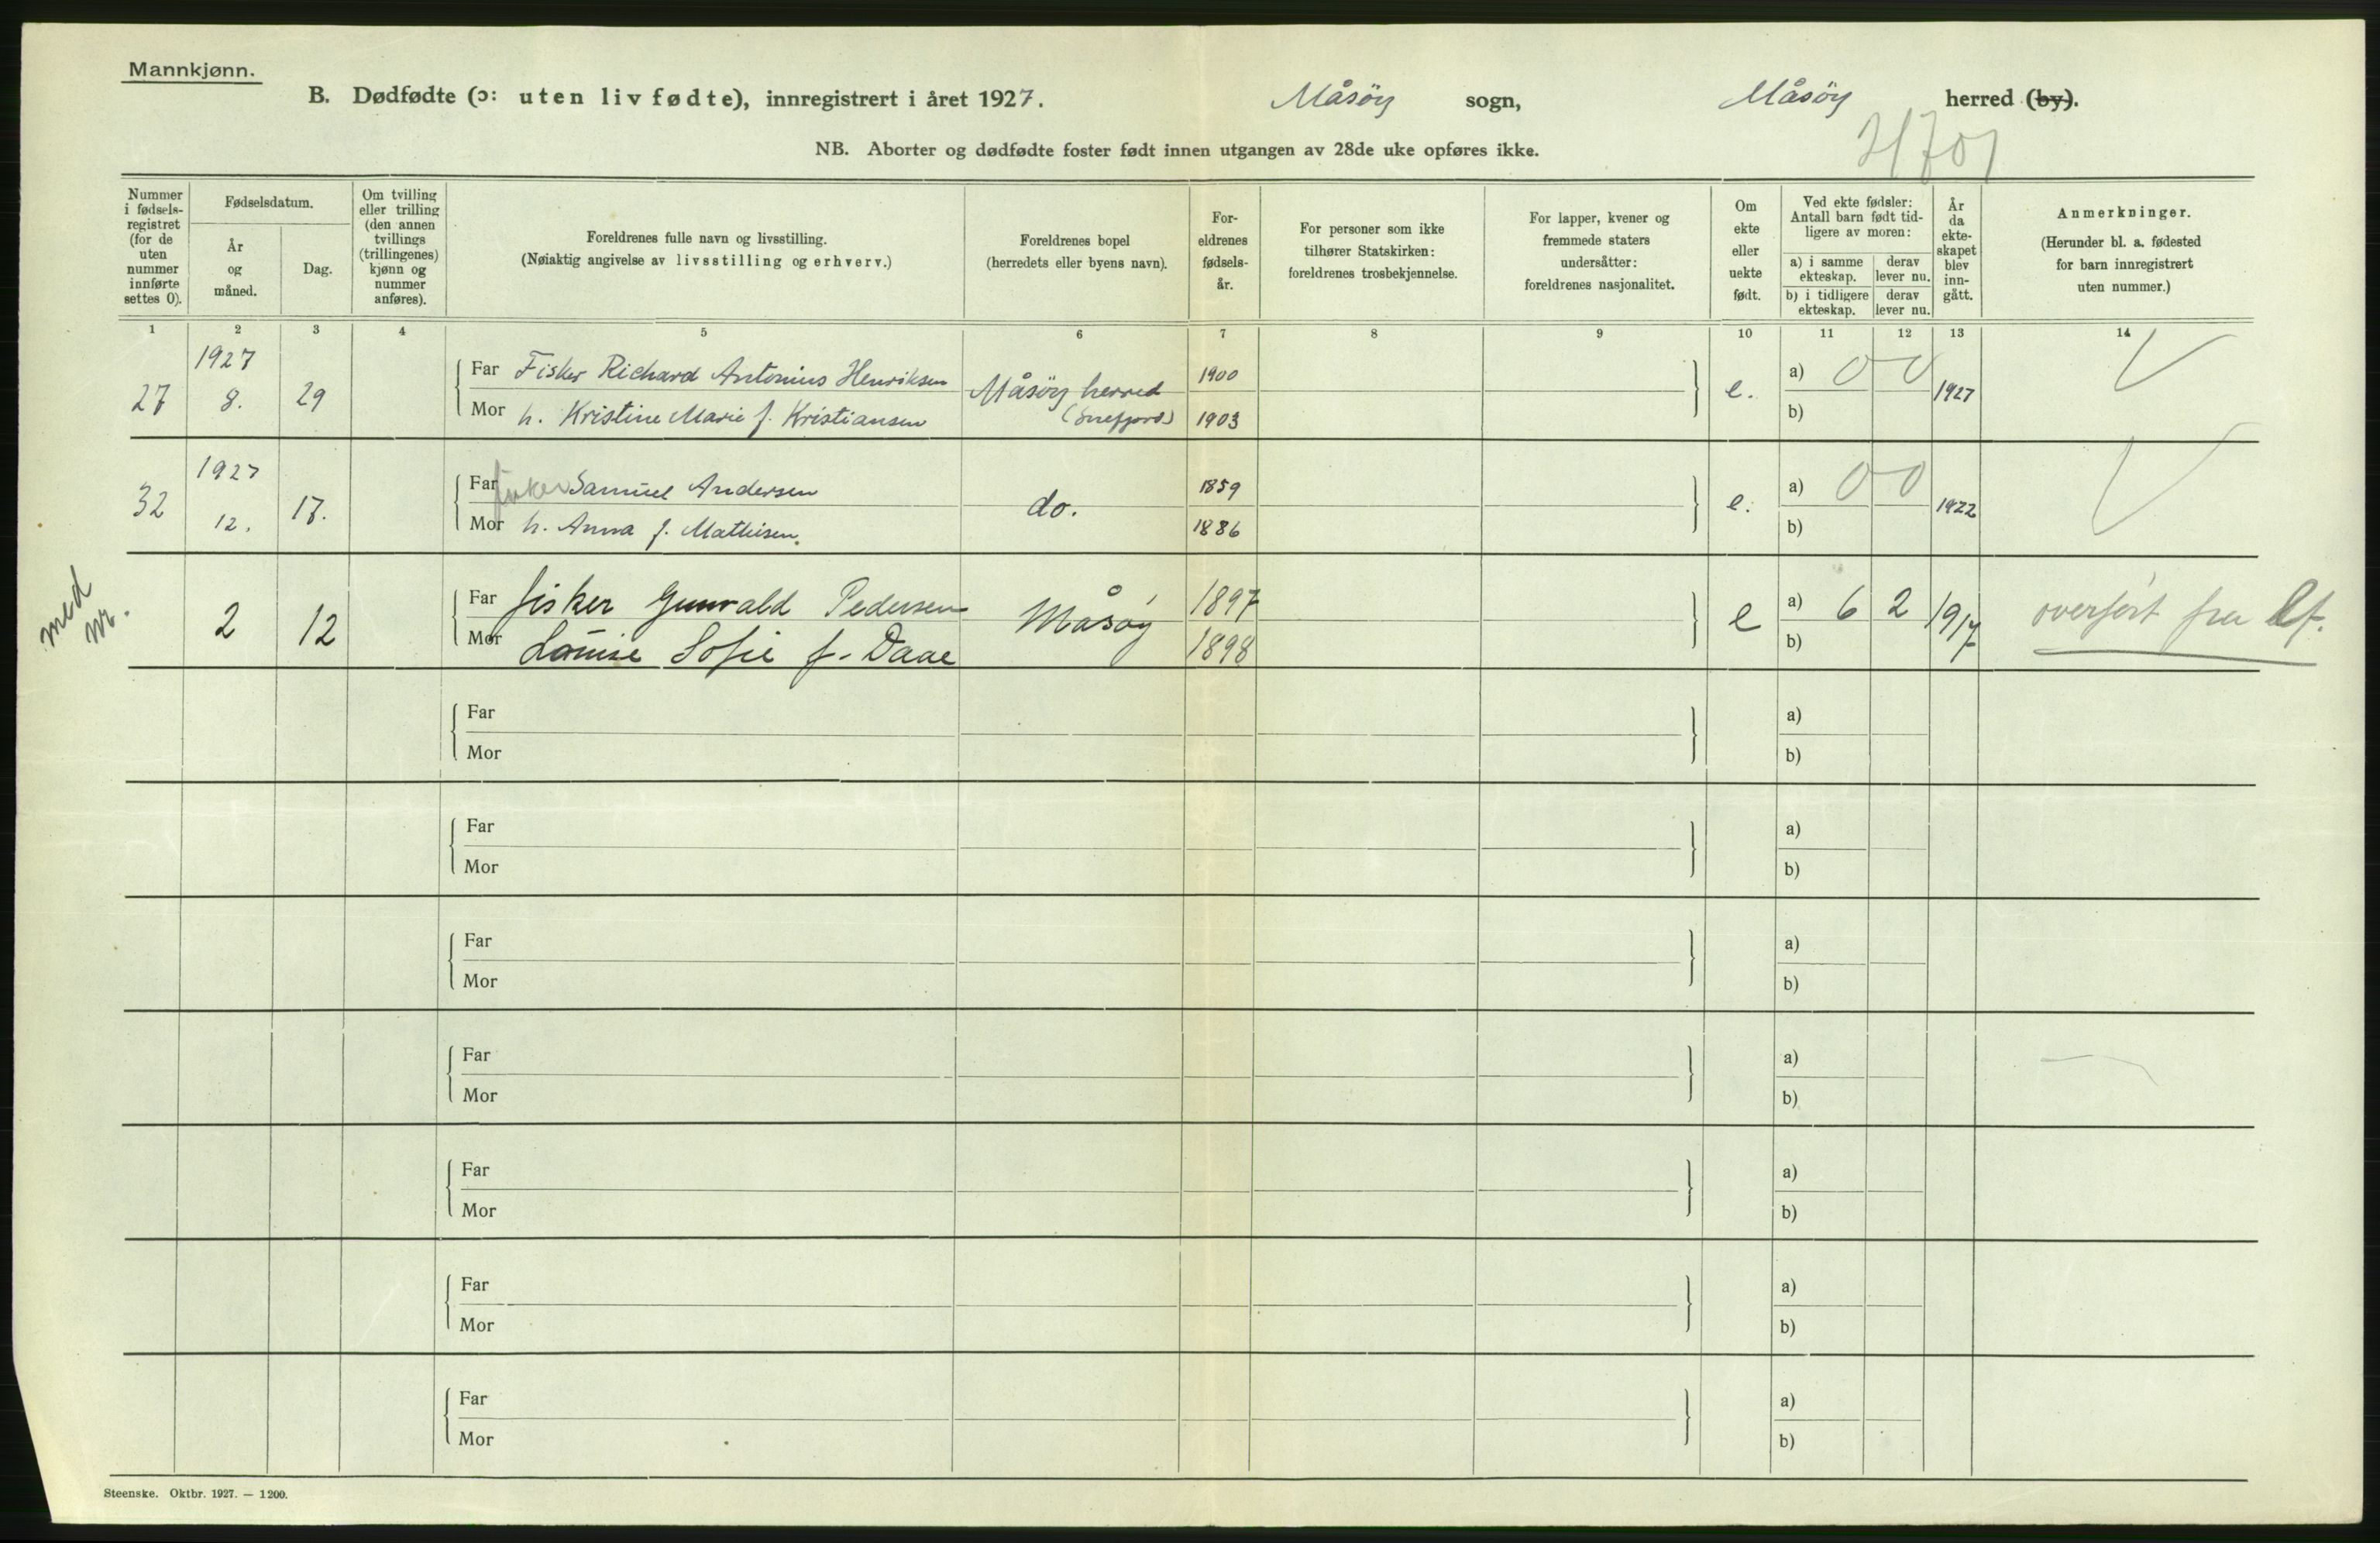 Mannkjønn.
B. Dødfødte (ɔ: uten liv fødte), innregistrert i året 1927. Måsöy sogn, Måsöy herred (by).
NB. Aborter og dødfødte foster født innen utgangen av 28de uke opføres ikke.
Nummer i fødsels-registret (for de uten nummer innførte settes 0).
Fødselsdatum.
År og måned.
Dag.
Om tvilling eller trilling (den annen tvillings (trillingenes) kjønn og nummer anføres).
Foreldrenes fulle navn og livsstilling.
(Nøiaktig angivelse av livsstilling og erhverv.)
Foreldrenes bopel
(herredets eller byens navn).
For-eldrenes fødsels-år.
For personer som ikke tilhører Statskirken: foreldrenes trosbekjennelse.
For lapper, kvener og fremmede staters undersåtter: foreldrenes nasjonalitet.
Om ekte eller uekte født.
Ved ekte fødsler: Antall barn født tid-ligere av moren:
a) i samme ekteskap.
derav lever nu.
b) i tidligere ekteskap.
derav lever nu.
År da ekte-skapet blev inn-gått.
Anmerkninger.
(Herunder bl. a. fødested for barn innregistrert uten nummer.)
1 2 3 4 5 6 7 8 9 10 11 12 13 14
27 1927 8. 29 Far Fisker Richard Antonius Henriksen Måsöy herred 1900 e. a) 0 0 1927
Mor h. Kristine Marie f. Kristiansen (Snefjord) 1903 b)
32 1927 12. 17. Far fisker Samuel Andersen do. 1859 e. a) 0 0 1922
Mor h. Anna f. Mathisen. 1886 b)
med nr. 2 12 Far fisker Gunvald Pedersen Måsøy 1897 e a) 6 2 1917 overført fra lf.
Mor Louise Sofie f. Daae 1898 b)
Far a)
Mor b)
Far a)
Mor b)
Far a)
Mor b)
Far a)
Mor b)
Far a)
Mor b)
Far a)
Mor b)
Far a)
Mor b)
Steenske. Oktbr. 1927. — 1200.